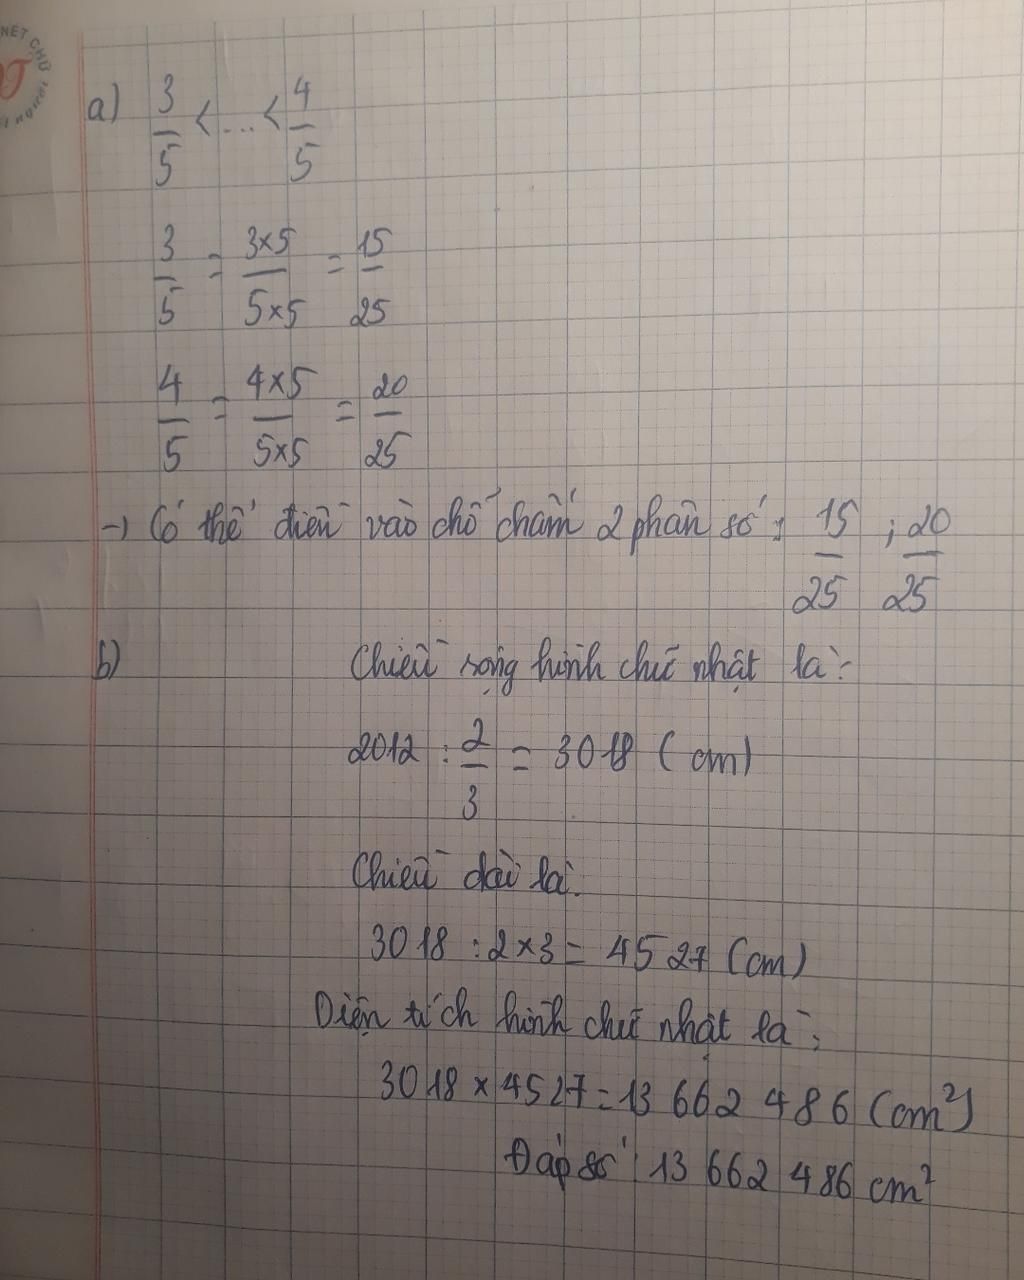 NÉT CHỮ
NGƯỜI
a) 3/5 < ... < 4/5
3/5 = 3×5/5×5 = 15/25
4/5 = 4×5/5×5 = 20/25
→ Có thể điền vào chỗ chấm 2 phân số: 15/25 ; 20/25
b) Chiều rộng hình chữ nhật là:
2012 : 2/3 = 3018 (cm)
Chiều dài là:
3018 : 2 × 3 = 4527 (cm)
Diện tích hình chữ nhật là:
3018 × 4527 = 13 662 486 (cm²)
Đáp số: 13 662 486 cm²